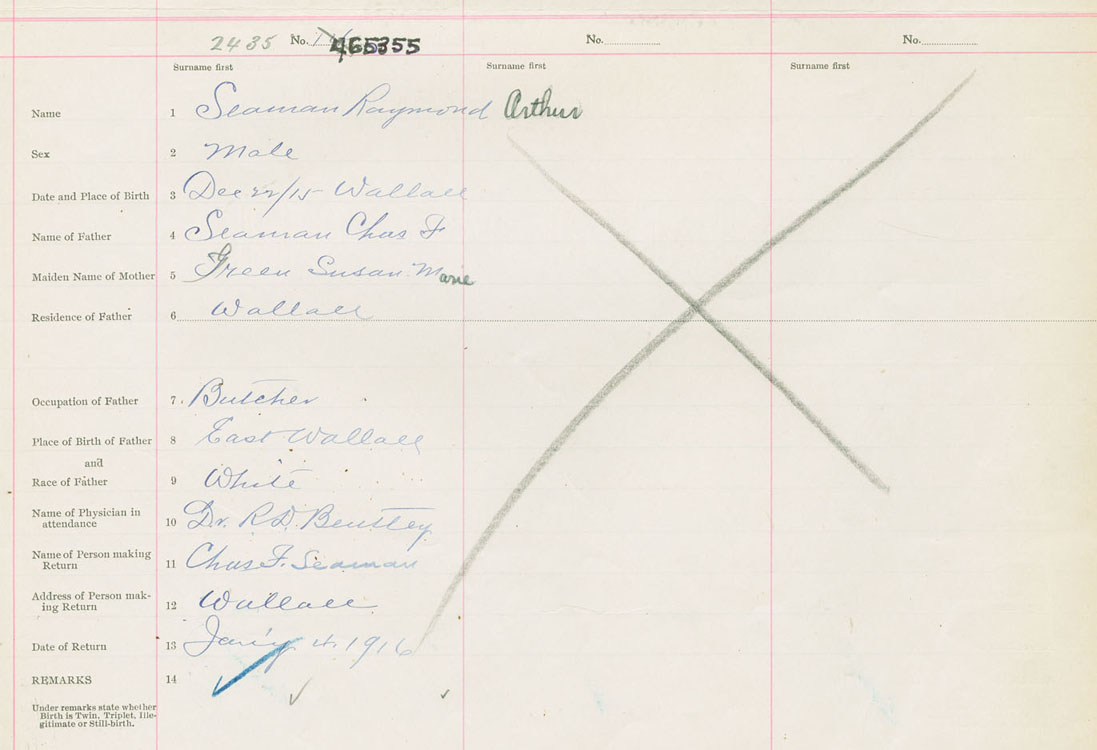 2435 No. 465355 No. No.
Surname first Surname first Surname first
Name 1 Seaman Raymond Arthur
Sex 2 Male
Date and Place of Birth 3 Dec 22/15 Wallace
Name of Father 4 Seaman Chas F
Maiden Name of Mother 5 Green Susan Marie
Residence of Father 6 Wallace
Occupation of Father 7 Butcher
Place of Birth of Father 8 East Wallace
and
Race of Father 9 White
Name of Physician in
attendance 10 Dr. R D
Name of Person making
Return 11 Chas F. Seaman
Address of Person mak-
ing Return 12 Wallace
Date of Return 13 Jan'y 4. 1916
REMARKS 14
Under remarks state whether
Birth is Twin, Triplet, Ille-
gitimate or Still-birth.